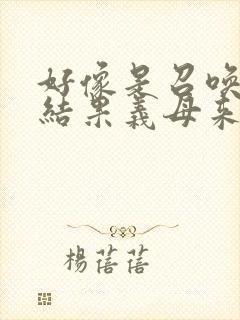 好像是召唤
結果義母来
楊蓓蓓